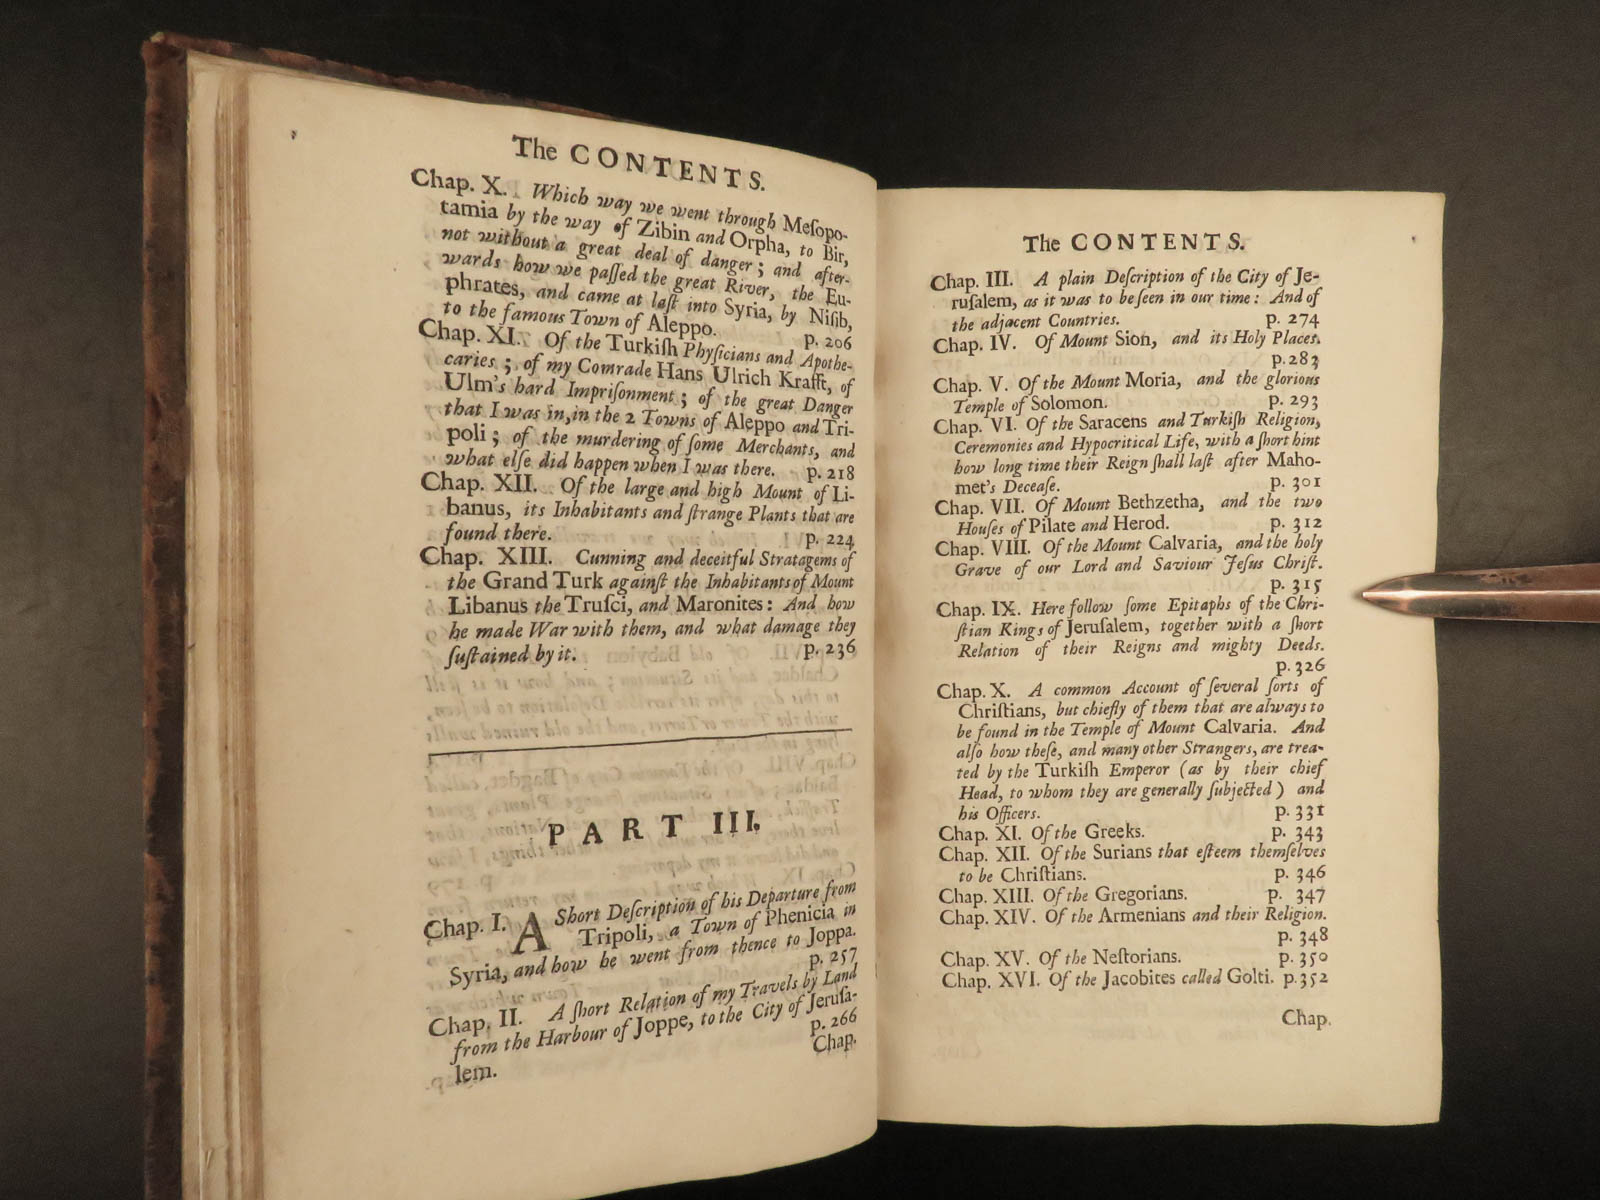 The CONTENTS.
Chap. X. Which way we went through Meſopo-
tamia by the way of Zibin and Orpha, to Bir,
not without a great deal of danger; and after-
wards how we paſſed the great River, the Eu-
phrates, and came at laſt into Syria, by Niſib,
to the famous Town of Aleppo. p. 206
Chap. XI. Of the Turkiſh Phyſicians and Apothe-
caries; of my Comrade Hans Ulrich Krafft, of
Ulm's hard Impriſonment; of the great Danger
that I was in, in the 2 Towns of Aleppo and Tri-
poli; of the murdering of ſome Merchants, and
what elſe did happen when I was there. p. 218
Chap. XII. Of the large and high Mount of Li-
banus, its Inhabitants and ſtrange Plants that are
found there. p. 224
Chap. XIII. Cunning and deceitful Stratagems of
the Grand Turk againſt the Inhabitants of Mount
Libanus the Truſci, and Maronites: And how
he made War with them, and what damage they
ſuſtained by it. p. 236
PART III.
Chap. I. A Short Deſcription of his Departure from
Tripoli, a Town of Phenicia in
Syria, and how he went from thence to Joppa.
p. 257
Chap. II. A ſhort Relation of my Travels by Land
from the Harbour of Joppe, to the City of Jeruſa-
lem. p. 266
Chap.
The CONTENTS.
Chap. III. A plain Deſcription of the City of Je-
ruſalem, as it was to be ſeen in our time: And of
the adjacent Countries. p. 274
Chap. IV. Of Mount Sion, and its Holy Places.
p. 283
Chap. V. Of the Mount Moria, and the glorious
Temple of Solomon. p. 293
Chap. VI. Of the Saracens and Turkiſh Religion,
Ceremonies and Hypocritical Life, with a ſhort hint
how long time their Reign ſhall laſt after Maho-
met's Deceaſe. p. 301
Chap. VII. Of Mount Bethzetha, and the two
Houſes of Pilate and Herod. p. 312
Chap. VIII. Of the Mount Calvaria, and the holy
Grave of our Lord and Saviour Jeſus Chriſt.
p. 315
Chap. IX. Here follow ſome Epitaphs of the Chri-
ſtian Kings of Jeruſalem, together with a ſhort
Relation of their Reigns and mighty Deeds.
p. 326
Chap. X. A common Account of ſeveral ſorts of
Chriſtians, but chiefly of them that are always to
be found in the Temple of Mount Calvaria. And
alſo how theſe, and many other Strangers, are trea-
ted by the Turkiſh Emperor (as by their chief
Head, to whom they are generally ſubjected) and
his Officers. p. 331
Chap. XI. Of the Greeks. p. 343
Chap. XII. Of the Surians that eſteem themſelves
to be Chriſtians. p. 346
Chap. XIII. Of the Gregorians. p. 347
Chap. XIV. Of the Armenians and their Religion.
p. 348
Chap. XV. Of the Neſtorians. p. 350
Chap. XVI. Of the Jacobites called Golti. p. 352
Chap.